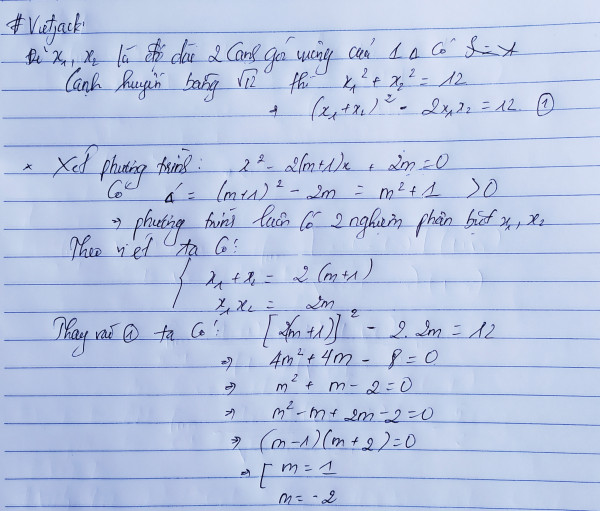 # Vietjack:
Để x₁, x₂ là độ dài 2 cạnh góc vuông của 1 Δ có
Cạnh huyền bằng √12 thì x₁² + x₂² = 12
→ (x₁+x₂)² - 2x₁x₂ = 12 ①
* Xét phương trình: x² - 2(m+1)x + 2m = 0
Có Δ' = (m+1)² - 2m = m² + 1 > 0
⇒ phương trình luôn có 2 nghiệm phân biệt x₁, x₂
Theo viét ta có:
{ x₁ + x₂ = 2(m+1)
x₁x₂ = 2m
Thay vào ① ta có: [2(m+1)]² - 2.2m = 12
⇒ 4m² + 4m - 8 = 0
⇒ m² + m - 2 = 0
⇒ m² - m + 2m - 2 = 0
⇒ (m-1)(m+2) = 0
⇒ [ m = 1
m = -2